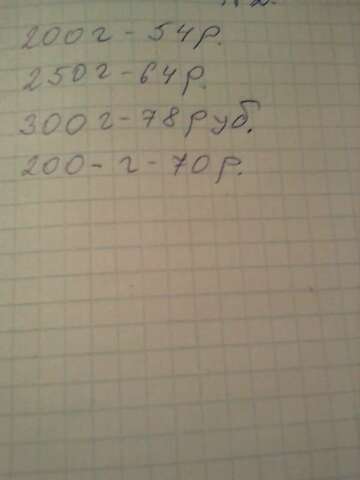 200г - 54р.
250г - 64р.
300г - 78руб.
200 - г - 70р.